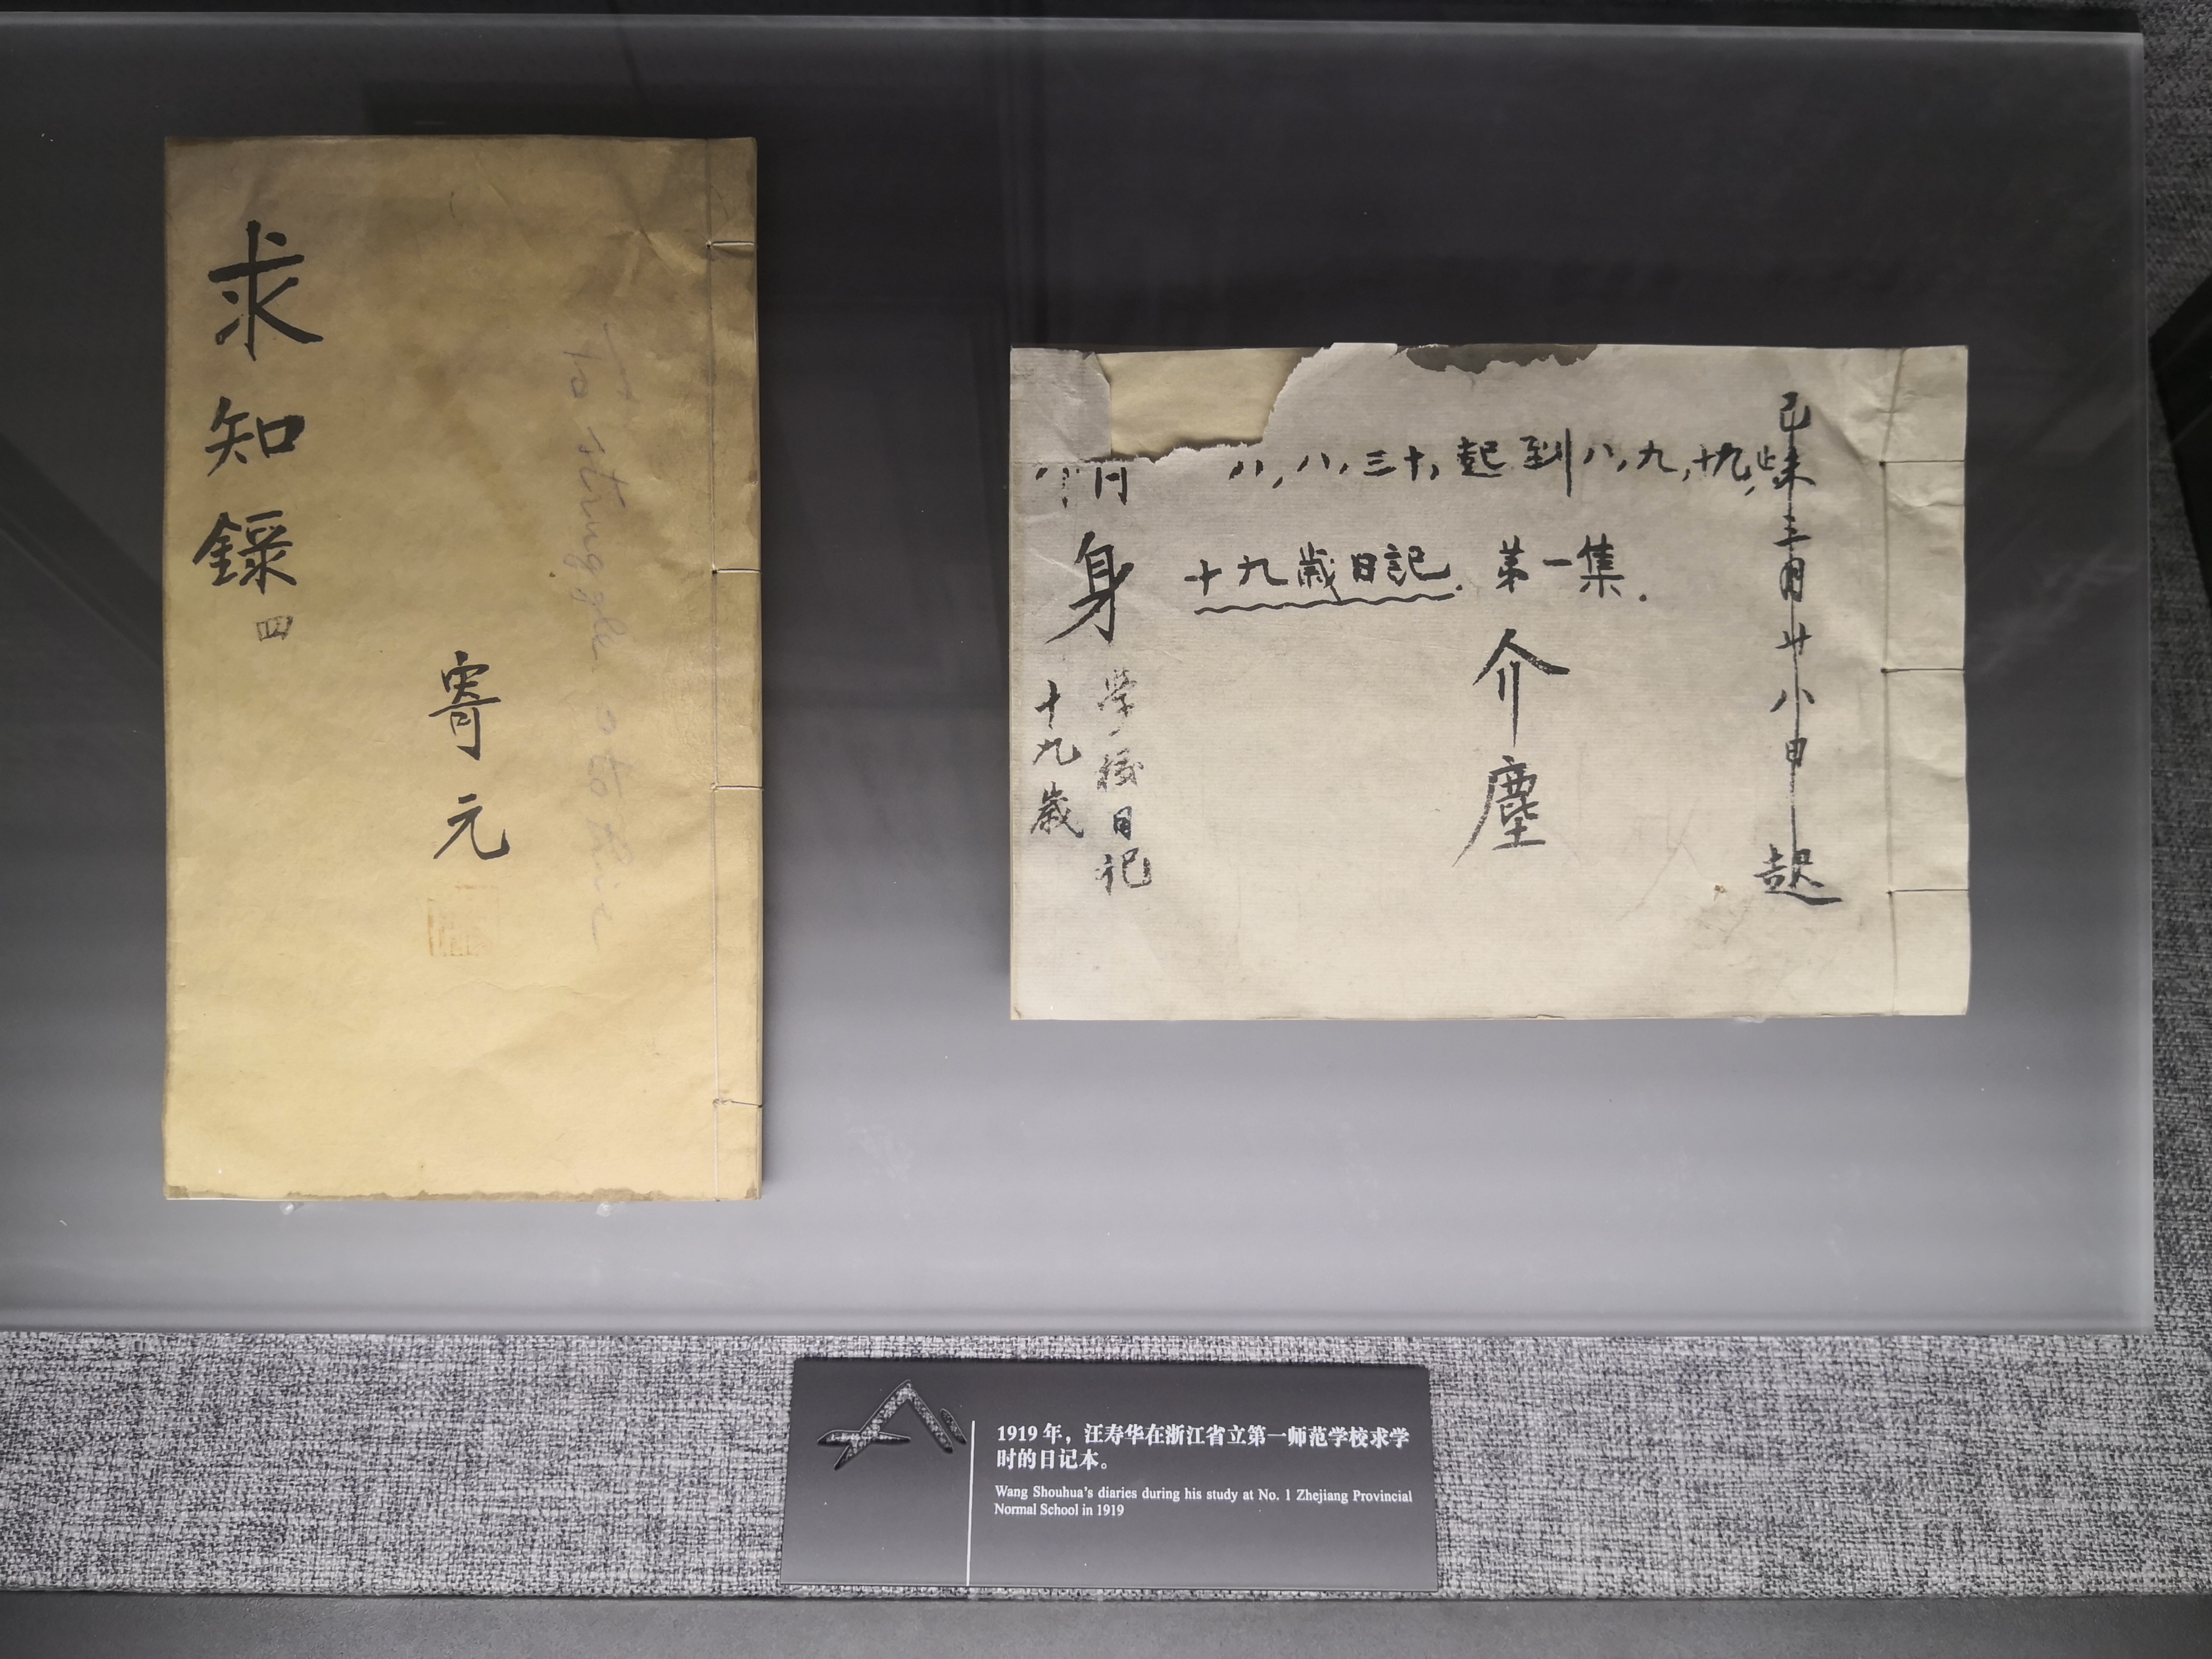 求知錄
四
寄元
To struggle
己未三月廿八日起
八,八,三十,起到八,九,十九,止
十九歲日記. 第一集.
介塵
身
學校日記
十九歲
1919 年，汪寿华在浙江省立第一师范学校求学
时的日记本。
Wang Shouhua's diaries during his study at No. 1 Zhejiang Provincial
Normal School in 1919